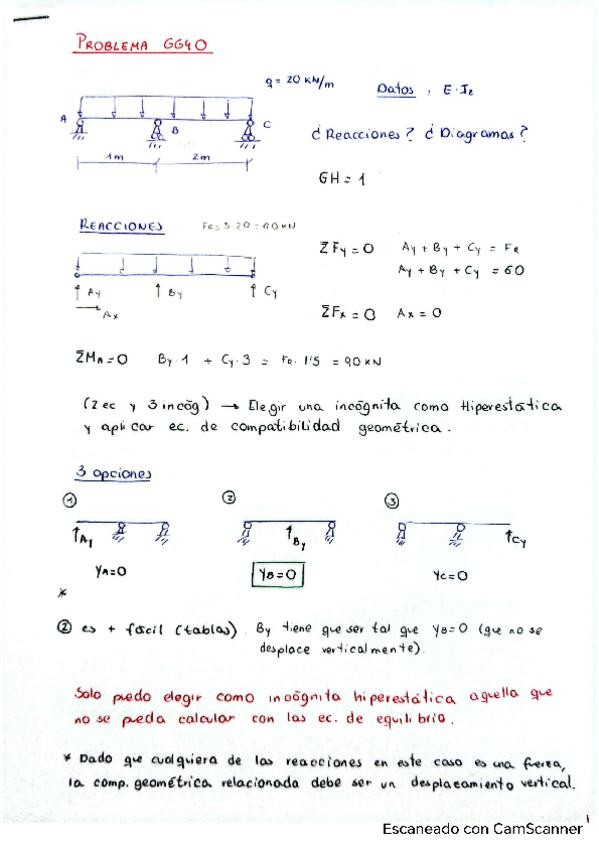 PROBLEMA GG40
q = 20 KN/m
Datos: E·Iz
A
B
C
¿Reacciones? ¿Diagramas?
1m
2m
GH = 1
REACCIONES Fe = 3·20 = 60 KN
ΣFy = 0 Ay + By + Cy = Fe
Ay + By + Cy = 60
Ay By Cy
Ax
ΣFx = 0 Ax = 0
ΣMA = 0 By·1 + Cy·3 = Fe·1'5 = 90 KN
(2 ec y 3 incóg) → Elegir una incógnita como Hiperestática
y aplicar ec. de compatibilidad geométrica.
3 opciones
① ② ③
Ay By Cy
yA=0 yB=0 yC=0
*
② es + fácil (tablas). By tiene que ser tal que yB=0 (que no se
desplace verticalmente).
Solo puedo elegir como incógnita hiperestática aquella que
no se pueda calcular con las ec. de equilibrio.
* Dado que cualquiera de las reacciones en este caso es una fuerza,
la comp. geométrica relacionada debe ser un desplazamiento vertical.
1
Escaneado con CamScanner